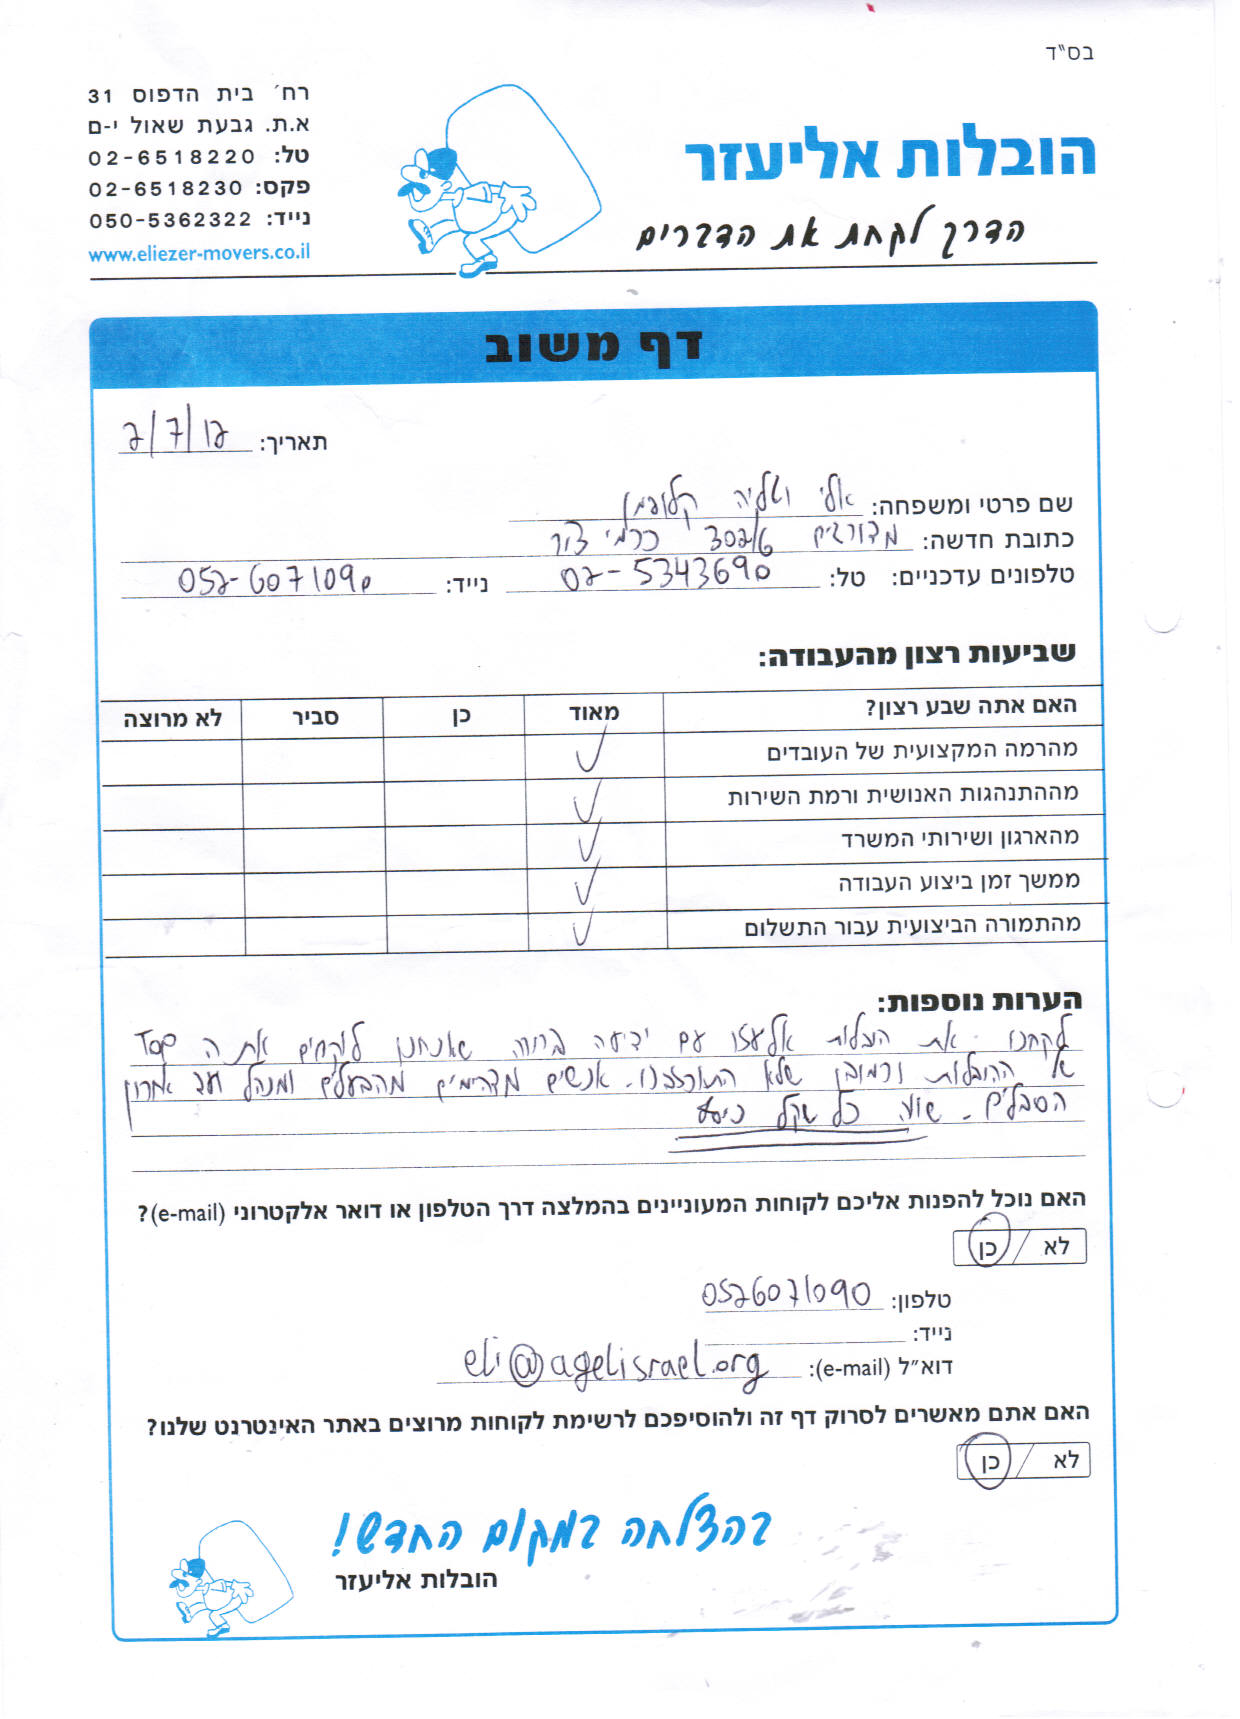 בס"ד
הובלות אליעזר
הדרך לקחת את הדברים
רח' בית הדפוס 31
א.ת. גבעת שאול י-ם
טל: 02-6518220
פקס: 02-6518230
נייד: 050-5362322
www.eliezer-movers.co.il
דף משוב
תאריך: 2/7/12
שם פרטי ומשפחה: אלי וטליה קלופמן
כתובת חדשה: כרמי צור
טלפונים עדכניים: טל: 02-5343690 נייד: 052-6071090
שביעות רצון מהעבודה:
האם אתה שבע רצון? מאוד כן סביר לא מרוצה
מהרמה המקצועית של העובדים ✓
מההתנהגות האנושית ורמת השירות ✓
מהארגון ושירותי המשרד ✓
ממשך זמן ביצוע העבודה ✓
מהתמורה הביצועית עבור התשלום ✓
הערות נוספות:
לקחנו את הובלות אליעזר עם ידיעה ברורה שאנחנו לוקחים את ה TOP
של ההובלות וכמובן שלא התאכזבנו. אנשים מדהימים מהבעלים ומנהל ועד אחרון
הסבלים. שווה כל שקל
האם נוכל להפנות אליכם לקוחות המעוניינים בהמלצה דרך הטלפון או דואר אלקטרוני (e-mail)?
לא / כן
טלפון: 0526071090
נייד:
דוא"ל (e-mail): eli@agelisrael.org
האם אתם מאשרים לסרוק דף זה ולהוסיפכם לרשימת לקוחות מרוצים באתר האינטרנט שלנו?
לא / כן
בהצלחה במקום החדש!
הובלות אליעזר